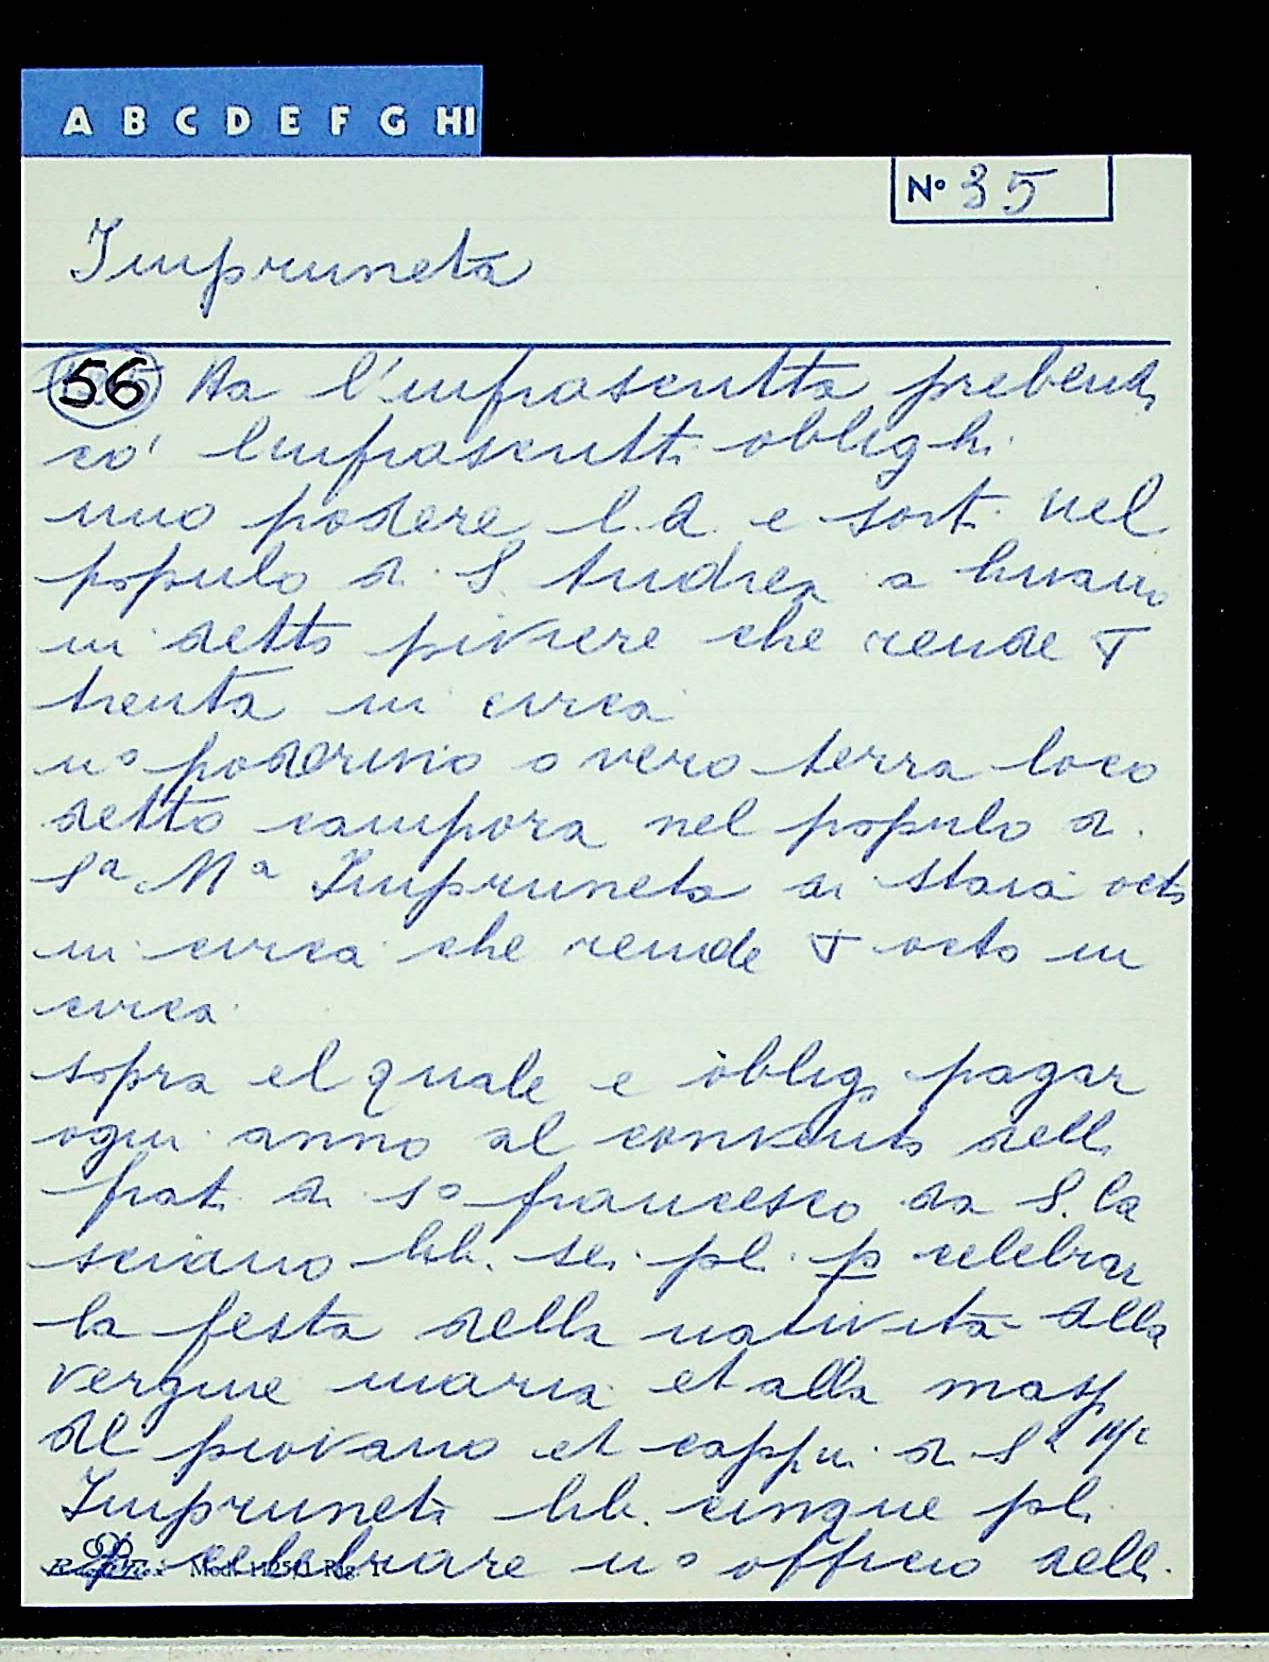 A B C D E F G HI
N° 35
Impruneta
56 Ha l'infrascritta prebend,
co' l'infrascritt. oblighi.
uno podere l.d. e sort. nel
populo di S. Andrea a
in detto piviere che rende ∇
trenta in circa
u° poderino o vero terra loco
detto campora nel populo di.
Sª Mª Impruneta di staia octo
in circa che rende ∇ octo in
circa.
sopra el quale e oblig, pagar
ogni anno al convento dell,
frat. di s° francesco da S. Ca
sciano lib. sei pl. p celebrar
la festa della nativita della
vergine maria et alla
del piovano et capp.ni di Sª Mª
Imprunet. lib. cinque pl.
p celebrare u° officio dell.